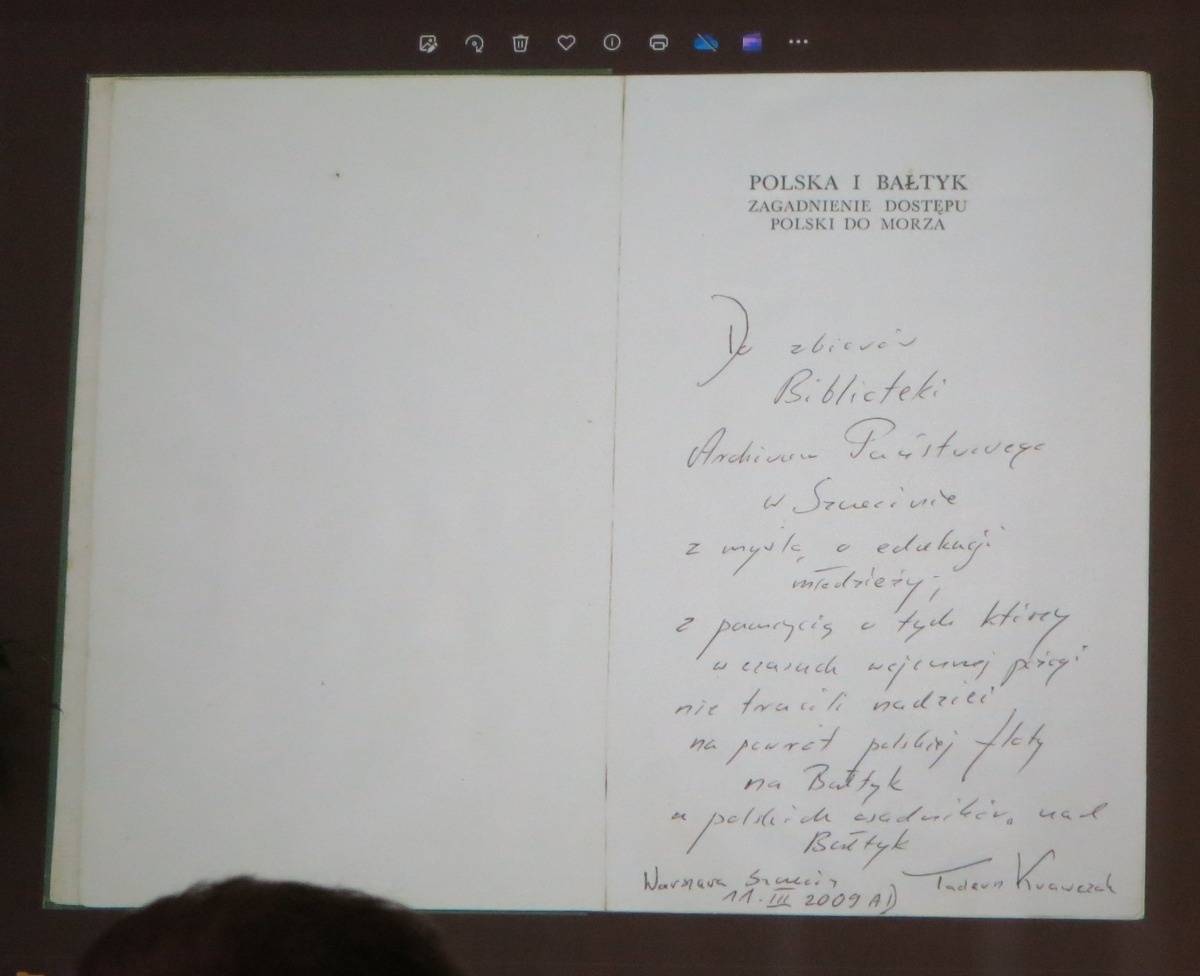 POLSKA I BAŁTYK
ZAGADNIENIE DOSTĘPU
POLSKI DO MORZA
Do zbiorów
Biblioteki
Archiwum Państwowego
w Szczecinie
z myślą o edukacji
młodzieży;
z pamięcią o tych którzy
w czasach wojennej pożogi
nie tracili nadziei
na powrót polskiej floty
na Bałtyk
a polskich osadników nad
Bałtyk
Warszawa Szczecin Tadeusz Krawczak
11.III 2009 AD